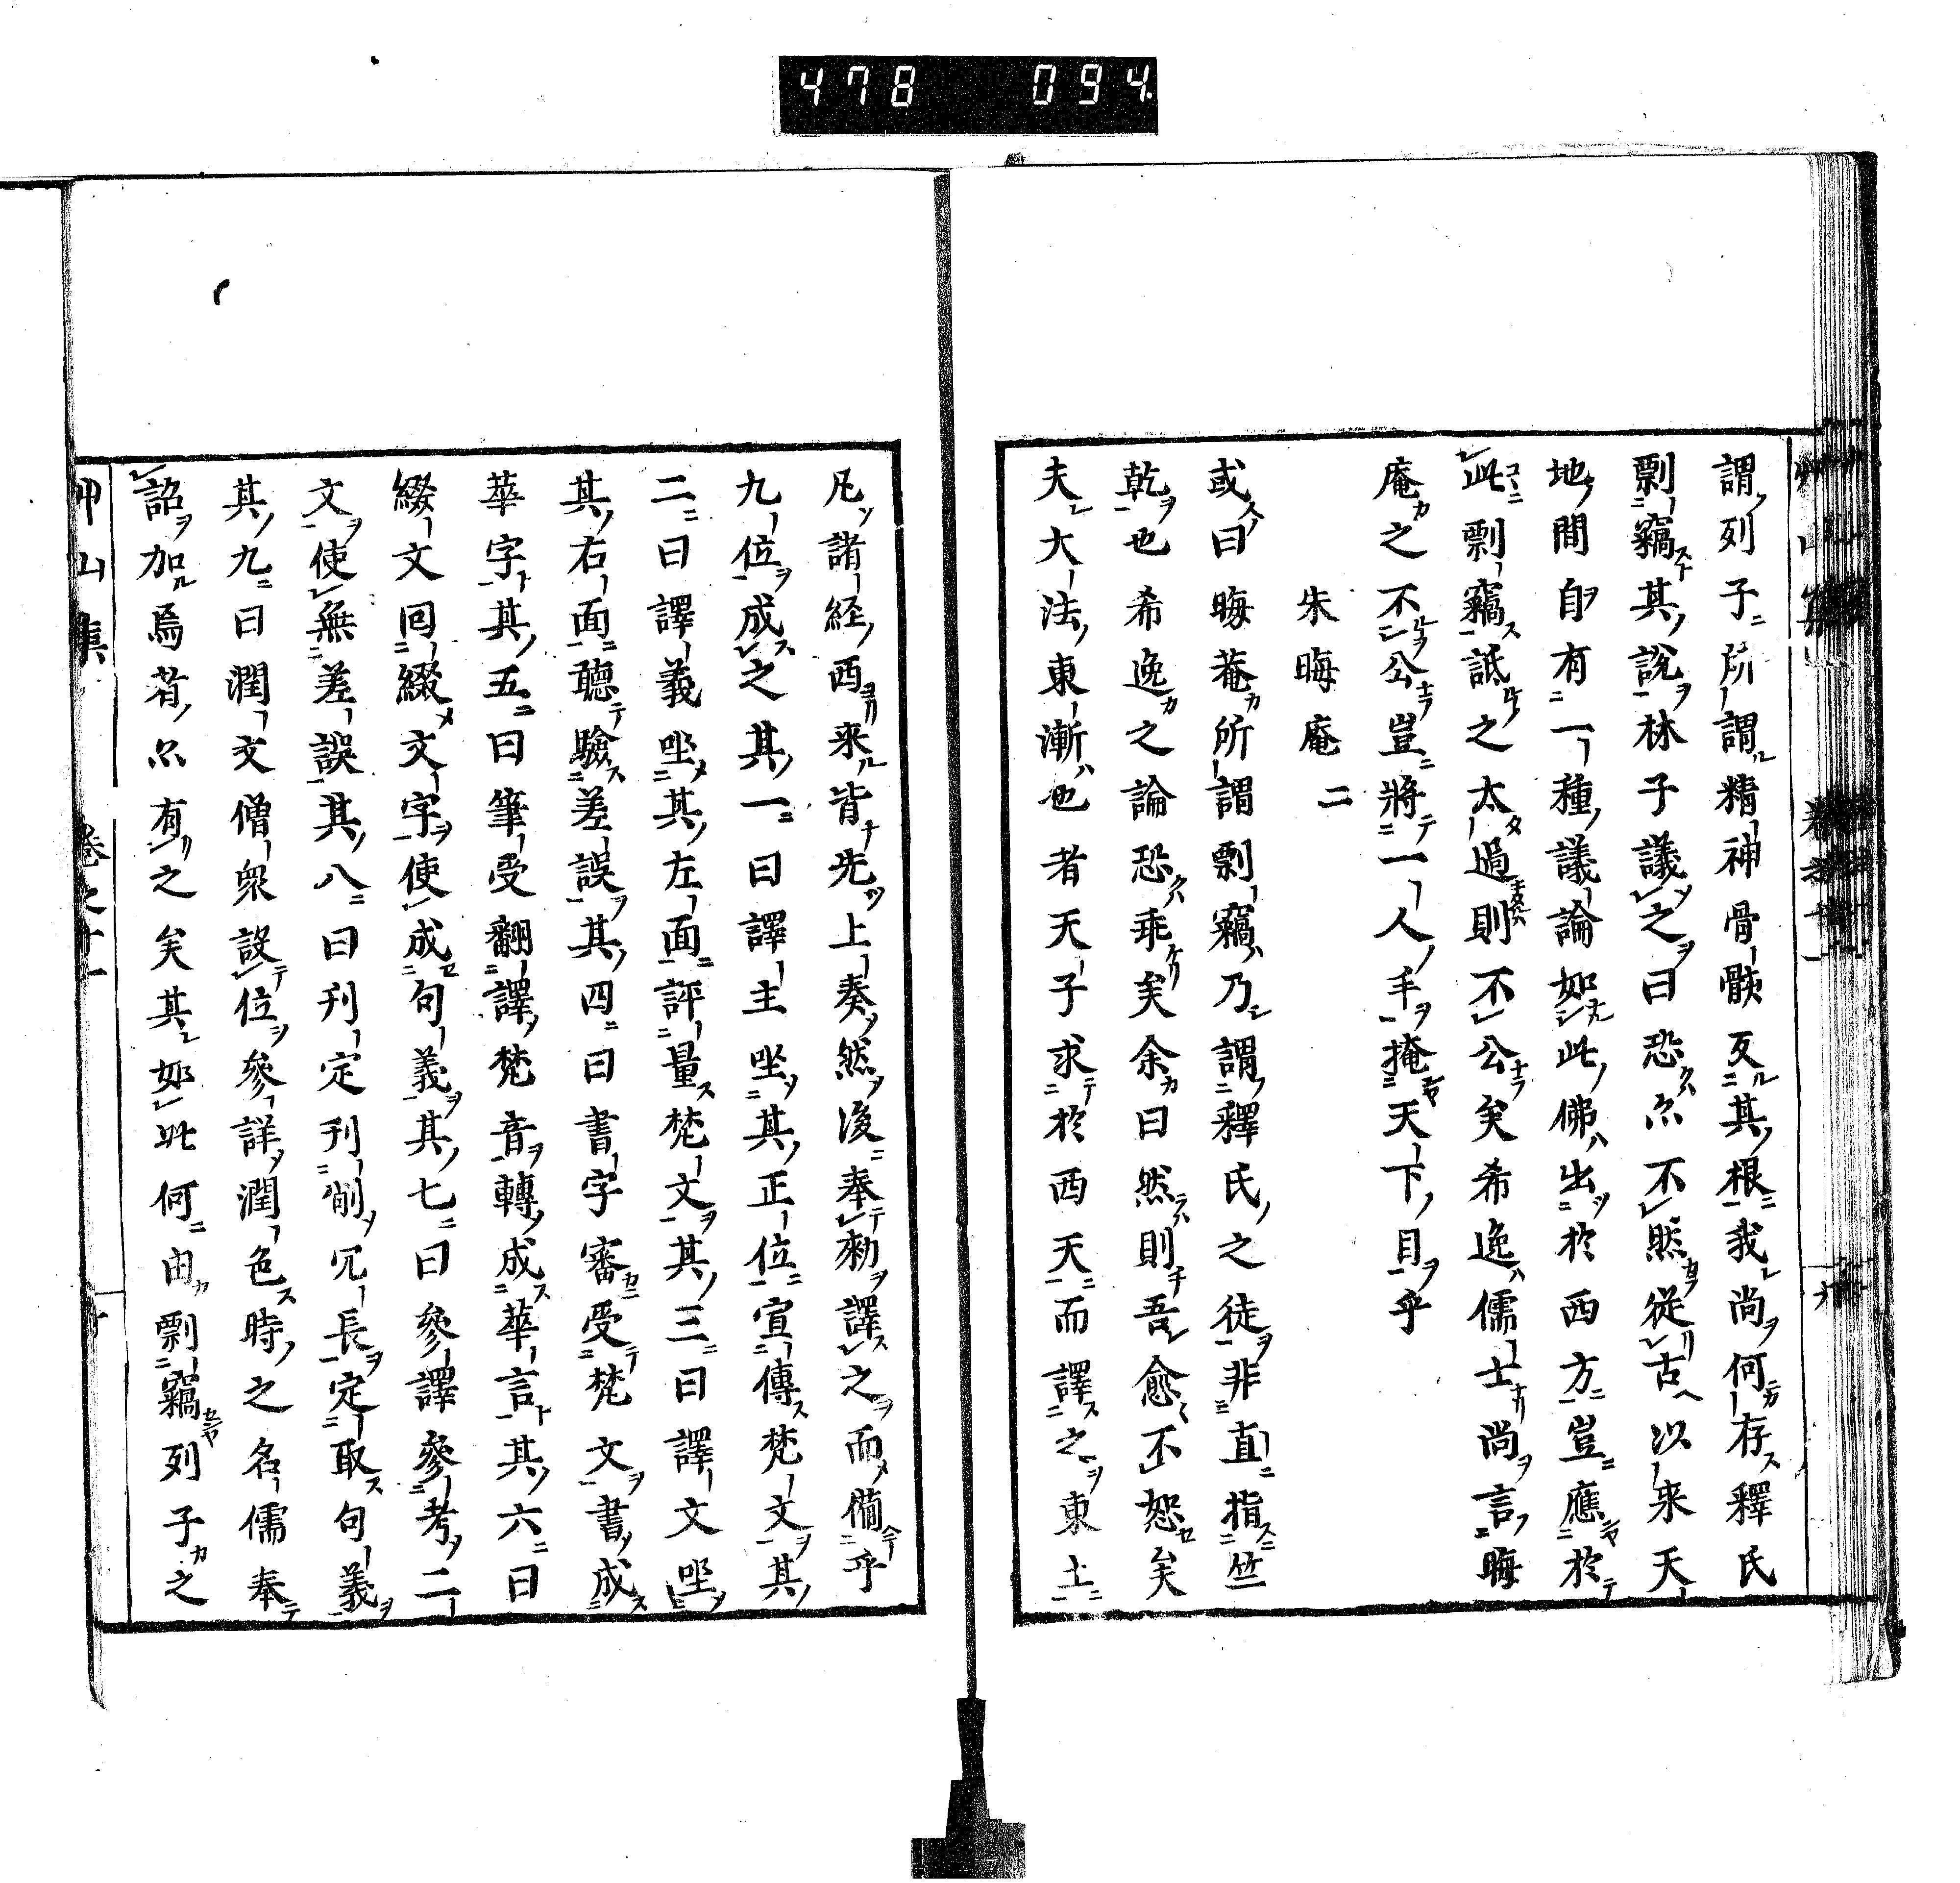 478 094
謂列子所謂精神骨骸反其根我尚何存釋氏
剽竊其說林子議之曰恐尒不然從古以来天
地間自有一種議論如此佛出於西方豈應於
此剽竊詆之太過則不公矣希逸儒士尚言晦
庵之不公豈將一人手掩天下目乎
朱晦庵二
或曰晦菴所謂剽竊乃謂釋氏之徒非直指竺
乾也希逸之論恐乖矣余曰然則吾愈不恕矣
夫大法東漸也者天子求於西天而譯之東土
凡諸経西来皆先上奏然後奉勅譯之而備乎
九位成之其一曰譯主坐其正位宣傳梵文其
二曰譯義坐其左面評量梵文其三曰譯文坐
其右面聽驗差誤其四曰書字審受梵文書成
華字其五曰筆受翻譯梵音轉成華言其六曰
綴文回綴文字使成句義其七曰參譯參考二
文使無差誤其八曰刊定刊削冗長定取句義
其九曰潤文僧衆設位參詳潤色時之名儒奉
詔加焉者尒有之矣其如此何由剽竊列子之
艸山集 卷之十一